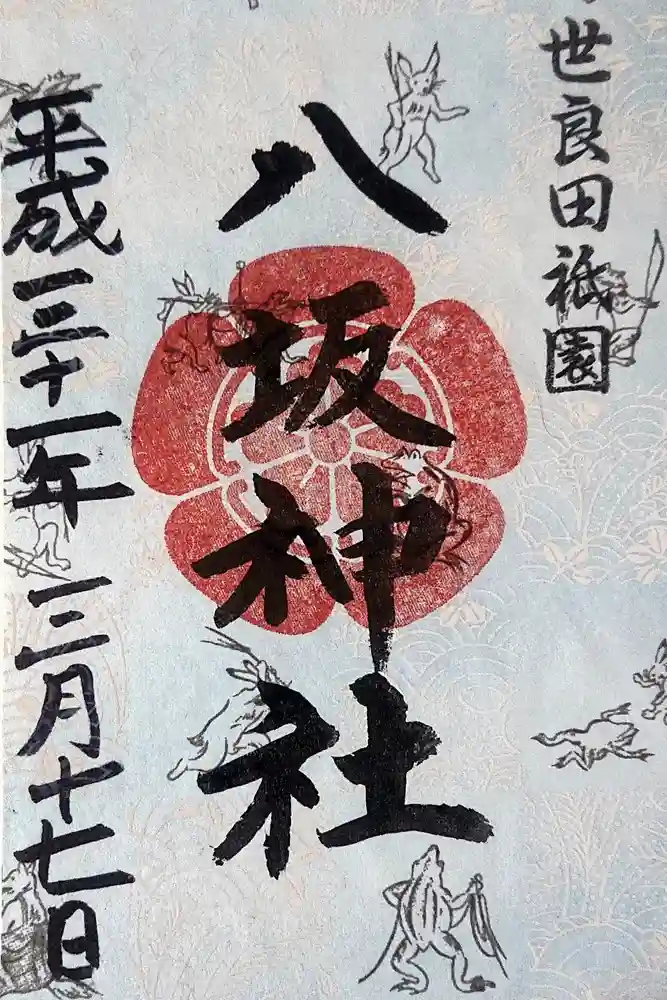 世良田祇園
八坂神社
平成三十一年三月十七日